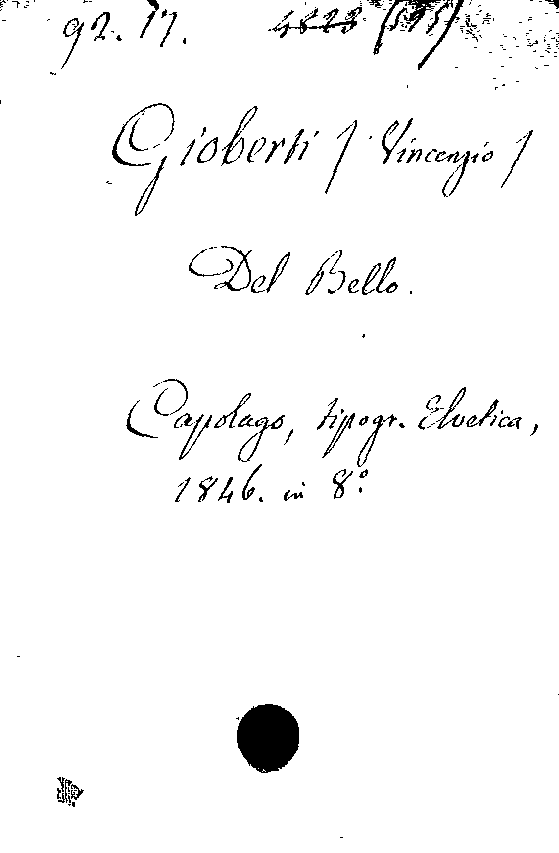 92. 17. 4828
Gioberti / Vincenzio /
Del Bello.
Capolago, tipogr. Elvetica,
1846. in 8.°